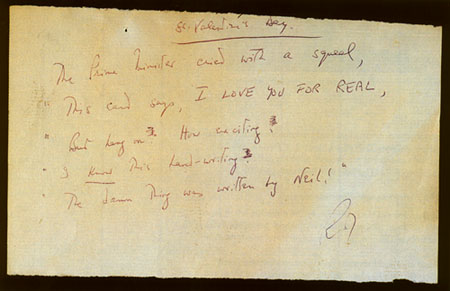 St. Valentine's Day.
The Prime Minister cried with a squeal,
"This card says, I LOVE YOU FOR REAL,
"But hang on! How exciting!
"I know this hand-writing!
"The damn thing was written by Neil!"